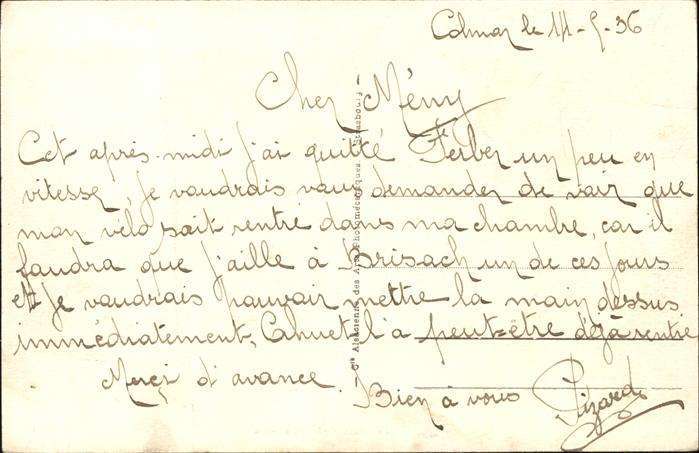 Colmar le 14-5-36
Cher Mény
Cet après-midi j'ai quitté Ferber un peu en
vitesse, Je voudrais vous demander de voir que
mon vélo soit rentré dans ma chambre, car il
faudra que j'aille à Brisach un de ces jours
et je voudrais pouvoir mettre la main dessus
immédiatement, Cahuet l'a peut-être déjà rentré
Merçi d'avance.
Bien à vous Pizard
Cie Alsacienne des Arts Photomécaniques, Strasbourg